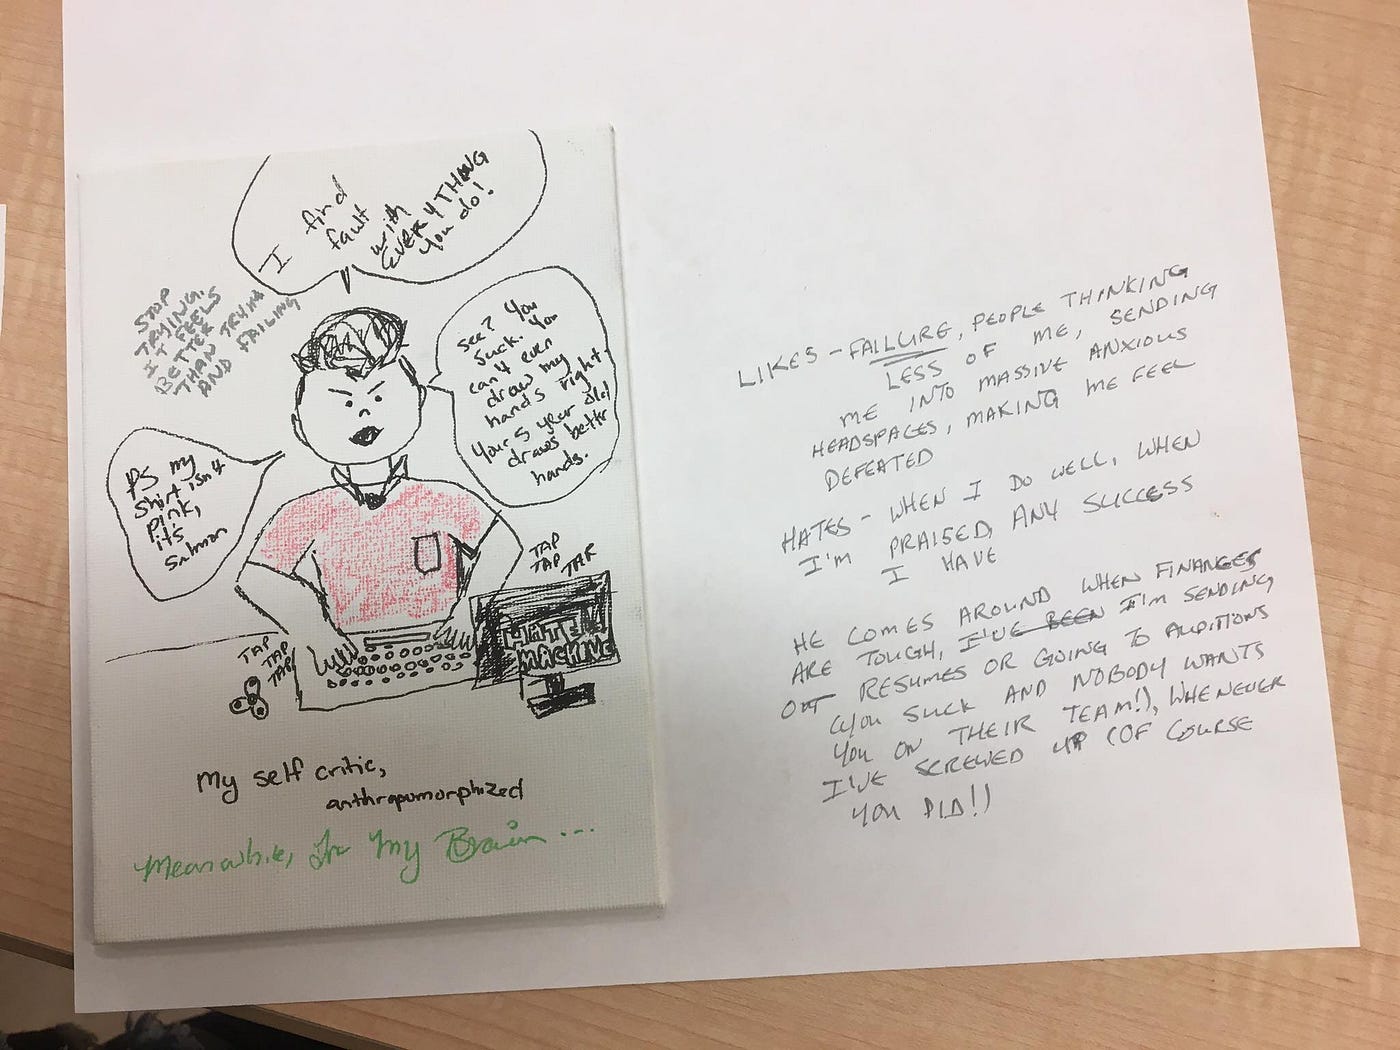 I find
fault
with
EVERYTHING
you do!
STOP
TRYING.
IT FEELS
BETTER
THAN TRYING
AND FAILING
See? You
suck. You
can't even
draw my
hands right.
Your 5 year old
draws better
hands.
PS my
shirt isn't
pink,
it's
salmon
TAP
TAP TAP
TAP
TAP
TAP
HATE
MACHINE
My self critic,
anthropomorphized
Meanwhile, In My Brain...
LIKES - FAILURE, PEOPLE THINKING
LESS OF ME, SENDING
ME INTO MASSIVE ANXIOUS
HEADSPACES, MAKING ME FEEL
DEFEATED
HATES - WHEN I DO WELL, WHEN
I'M PRAISED, ANY SUCCESS
I HAVE
HE COMES AROUND WHEN FINANCES
ARE TOUGH, I'VE BEEN I'M SENDING
OUT RESUMES OR GOING TO AUDITIONS
(YOU SUCK AND NOBODY WANTS
YOU ON THEIR TEAM!), WHENEVER
I'VE SCREWED UP (OF COURSE
YOU DID!)